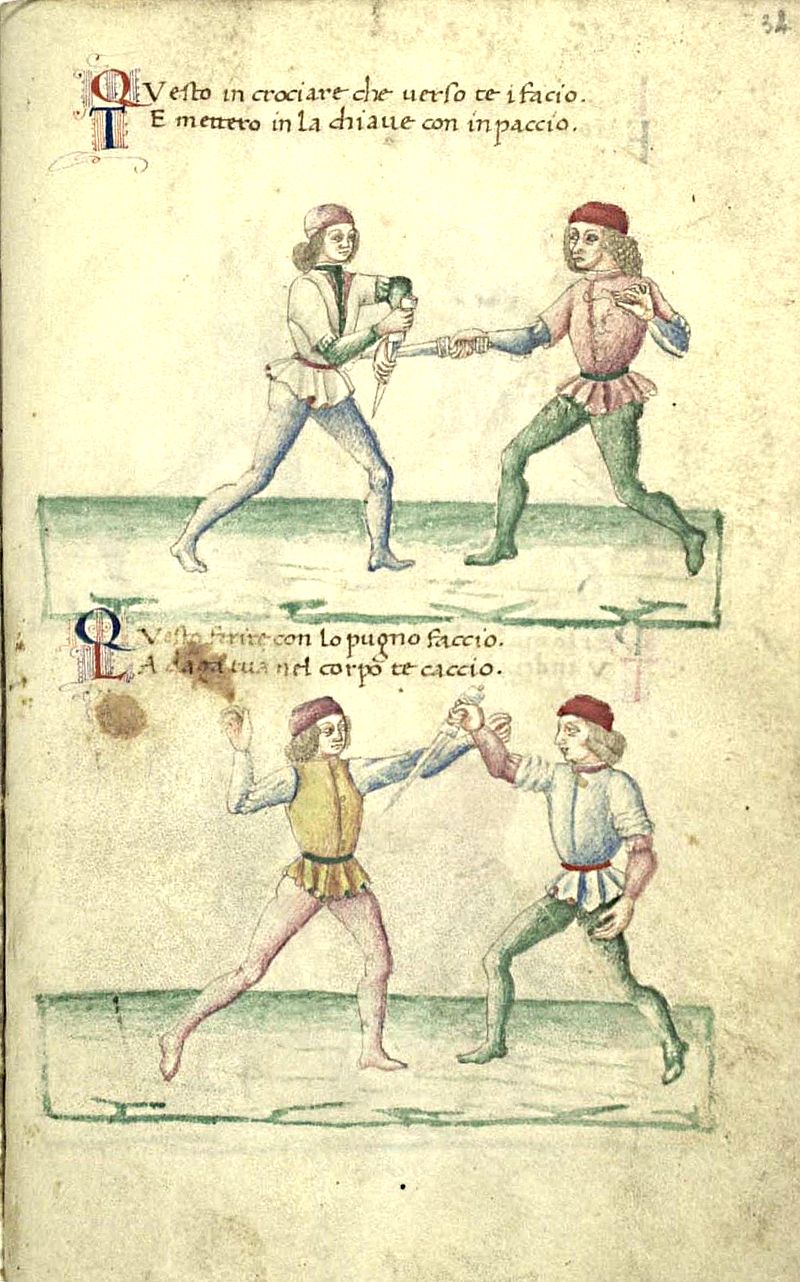 34
QVesto in crociare che uerso te i facio.
TE mettero in la chiaue con inpaccio.
QVesto ferire con lo pugno faccio.
LA daga tua nel corpo te caccio.